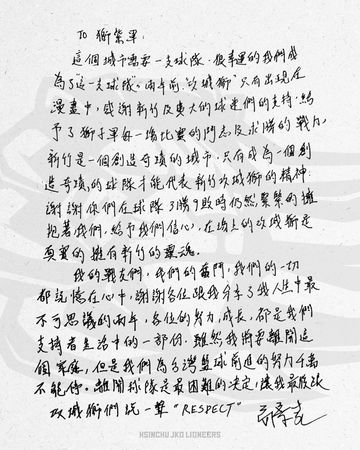 TO 獅紫軍:
這個城市需要一支球隊,很幸運的我們成
為了"這一支球隊",兩年前"攻城獅"只有出現在
漫畫中,感謝新竹及廣大的球迷們的支持,給
予了獅子軍每一場比賽的鬥志及求勝的戰力,
新竹是一個創造奇蹟的城市,只有成為一個創
造奇蹟的球隊才能代表新竹攻城獅的精神,
謝謝你們在球隊8勝19敗時仍然緊緊的擁
抱著我們,給予我們信心,在場上的攻城獅是
真實的擁有新竹的靈魂。
我的戰友們,我們的奮鬥,我們的一切
都記憶在心中,謝謝各位跟我分享了我人生中最
不可思議的兩年,各位的努力,成長,都是我們
支持者生活中的一部份,雖然我將要離開這
個家庭,但是我們為台灣籃球前進的努力千萬
不能停。離開球隊是最困難的決定,讓我最後跟
攻城獅們說一聲"RESPECT"
HSINCHU JKO LIONEERS